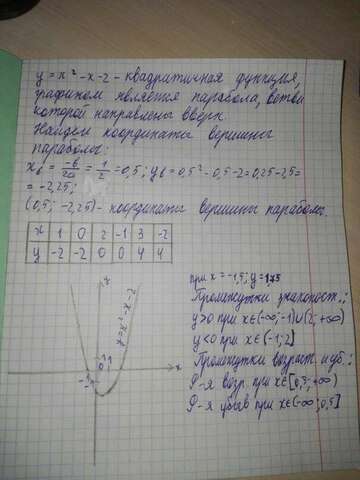 y = x² - x - 2 - квадратичная функция,
графиком является парабола, ветви
которой направлены вверх.
Найдем координаты вершины
параболы:
xв = -b/2a = 1/2 = 0,5; yв = 0,5² - 0,5 - 2 = 0,25 - 2,5 =
= -2,25;
(0,5; -2,25) - координаты вершины параболы.
x 1 0 2 -1 3 -2
y -2 -2 0 0 4 4
при x = -1,5; y = 1,75
Промежутки знакопост.:
y>0 при x∈(-∞; -1)∪(2; +∞)
y<0 при x∈(-1; 2]
Промежутки возраст. и уб.:
Ф-я возр. при x∈[0,5; +∞)
Ф-я убыв при x∈(-∞; 0,5]
y = x² - x - 2
x